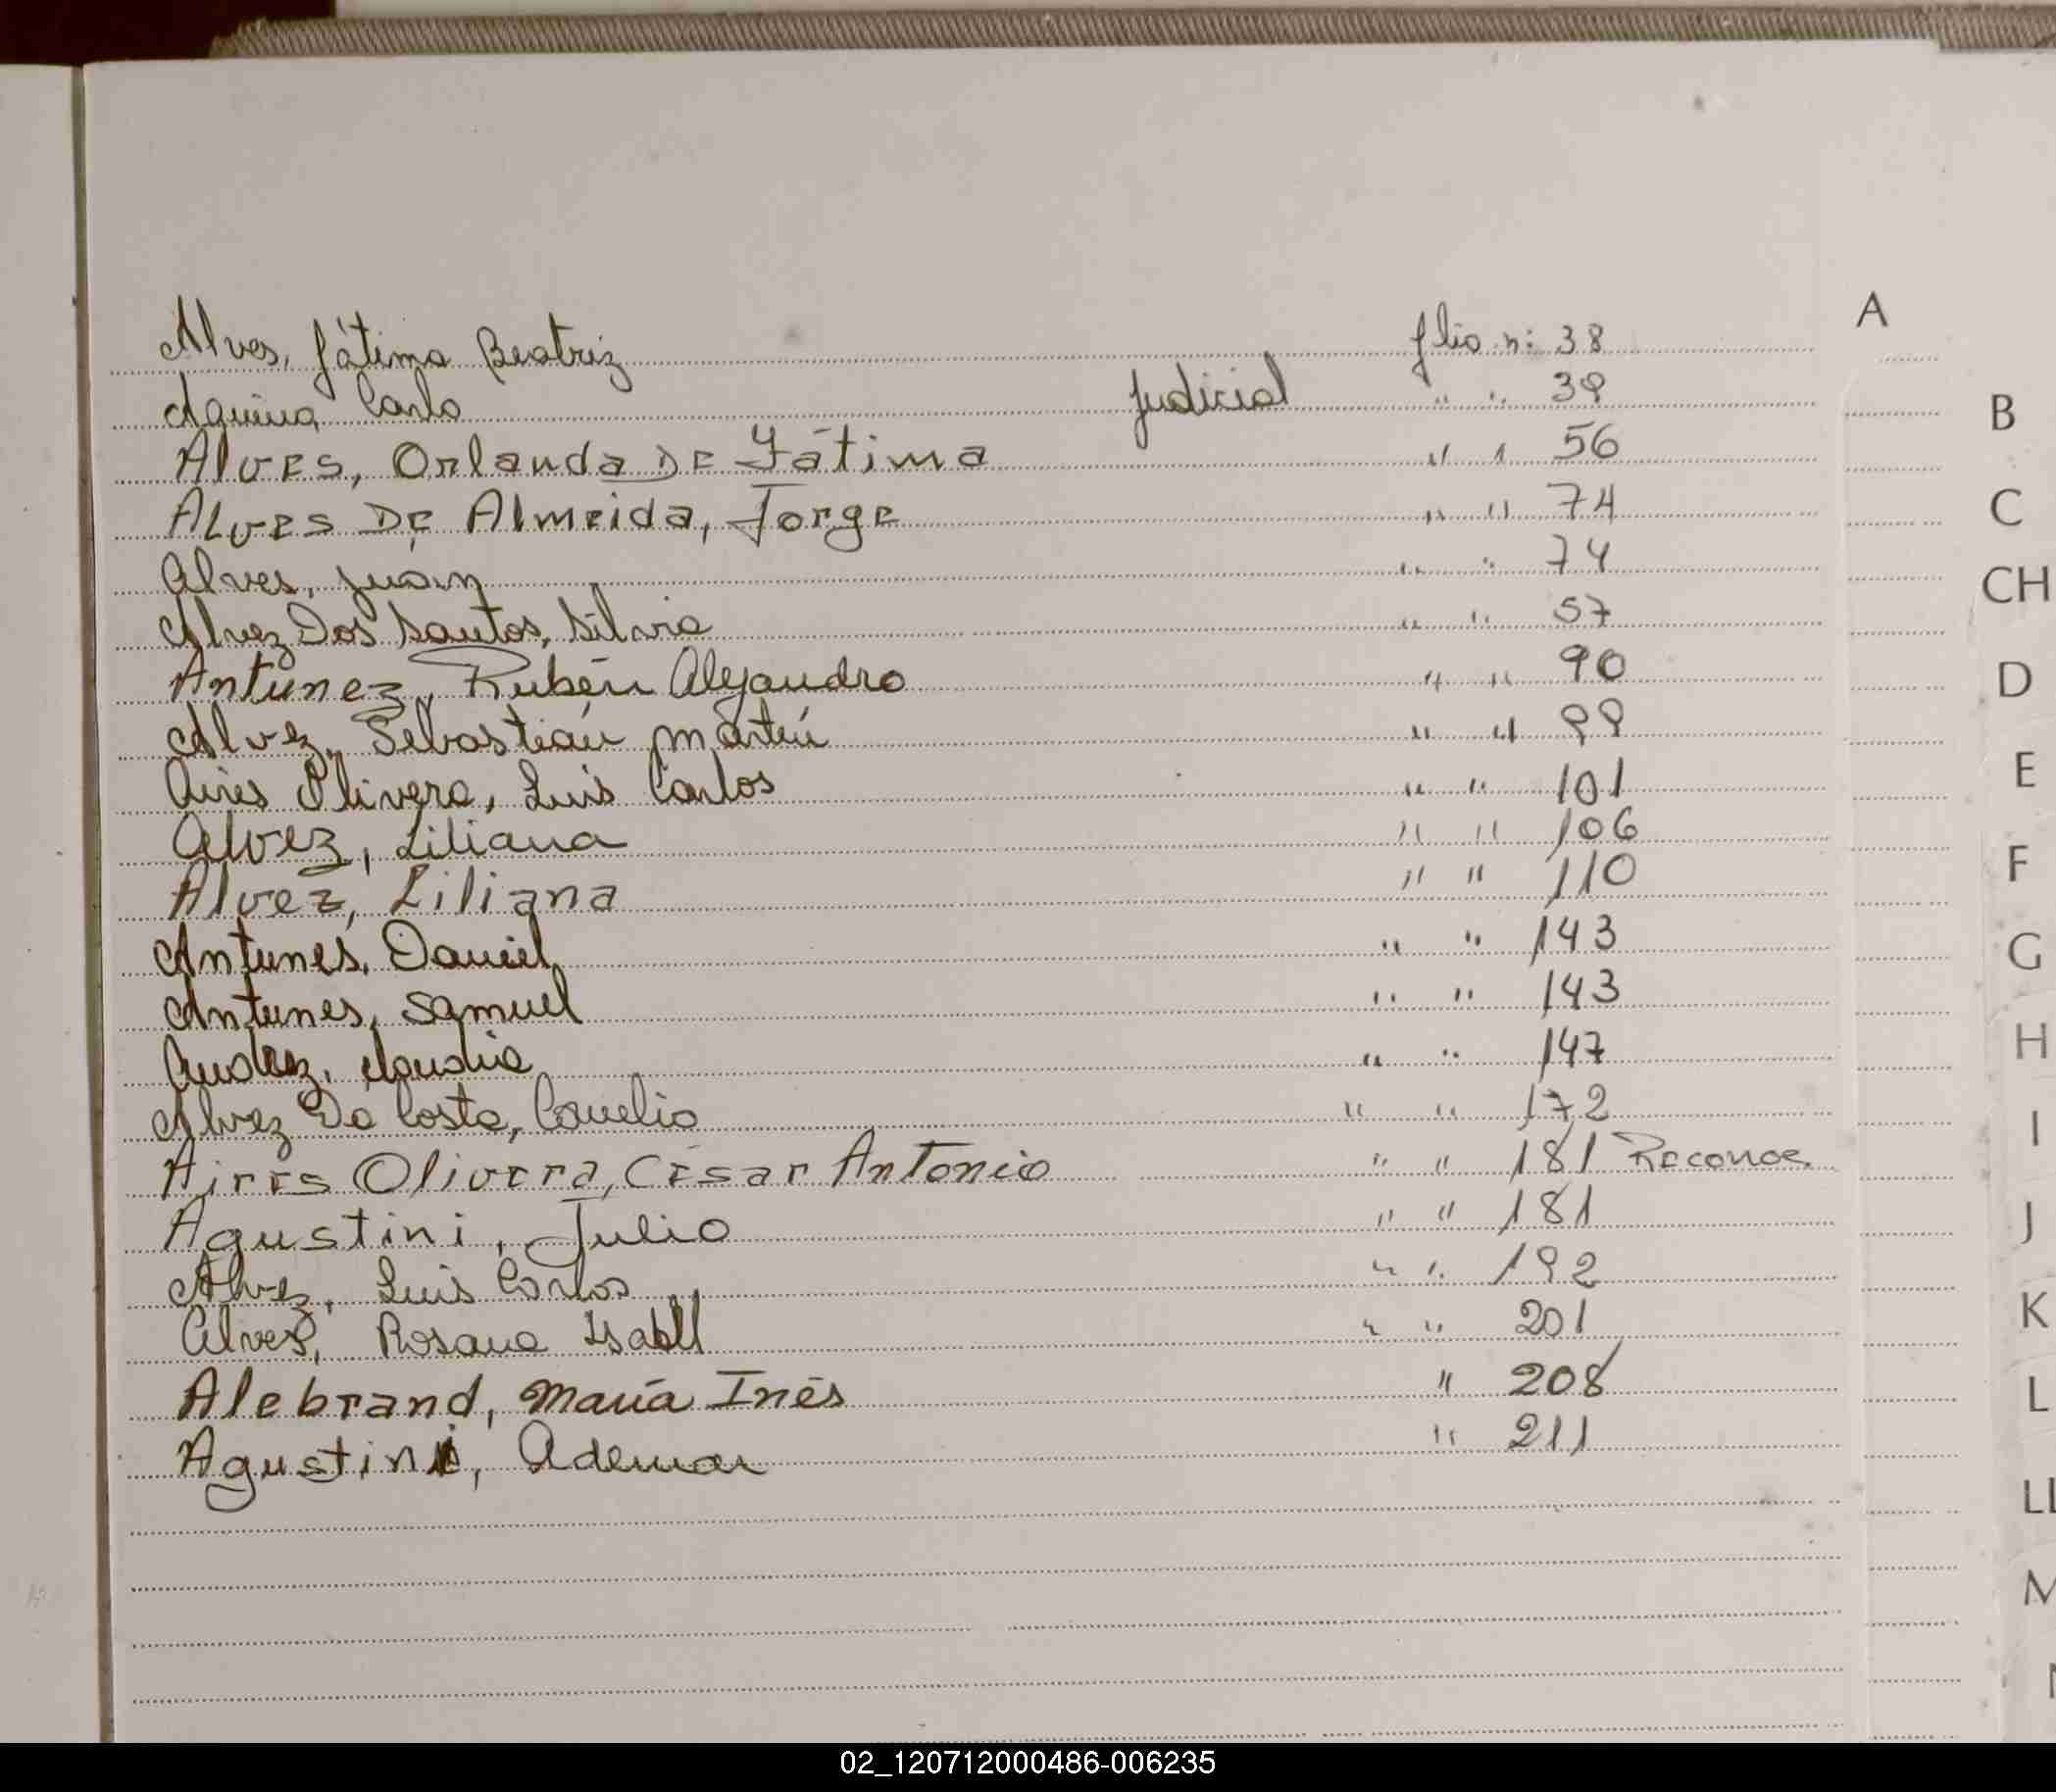 Alves, Fátima Beatriz folio n: 38
Aquino, Carlo Judicial " " 39
Alves, Orlanda De Fátima " " 56
Alves De Almeida, Jorge " " 74
Alves, Juan " " 74
Alvez Dos Santos, Silvia " " 57
Antunez, Rubén Alejandro " " 90
Alvez, Sebastián Martín " " 99
Aires Olivera, Luis Carlos " " 101
Alvez, Liliana " " 106
Alvez, Liliana " " 110
Antunes, Daniel " " 143
Antunes, Samuel " " 143
Claudia " " 147
Alvez Da Costa, " " 172
Aires Olivera, César Antonio " " 181 Reconoc.
Agustini, Julio " " 181
Alvez, Luis Carlos " " 192
Alves, Rosana Isabell " " 201
Alebrand, María Inés " 208
Agustini, Ademar " 211
A
B
C
CH
D
E
F
G
H
I
J
K
L
LL
M
02_120712000486-006235